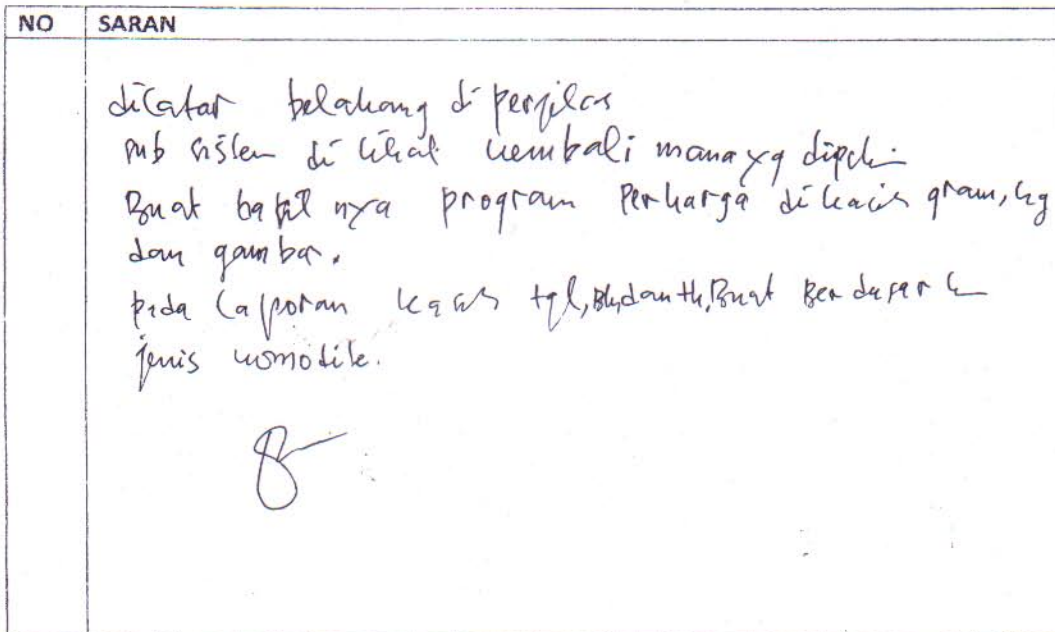 NO SARAN
dilatar belakang di perjelas
sub sistem di lihat kembali mana yg
Buat nya program Perharga di kasih gram, kg
dan gambar.
pada Laporan kasih tgl, Bln, dan th, Buat Berdasark
jenis komoditi.